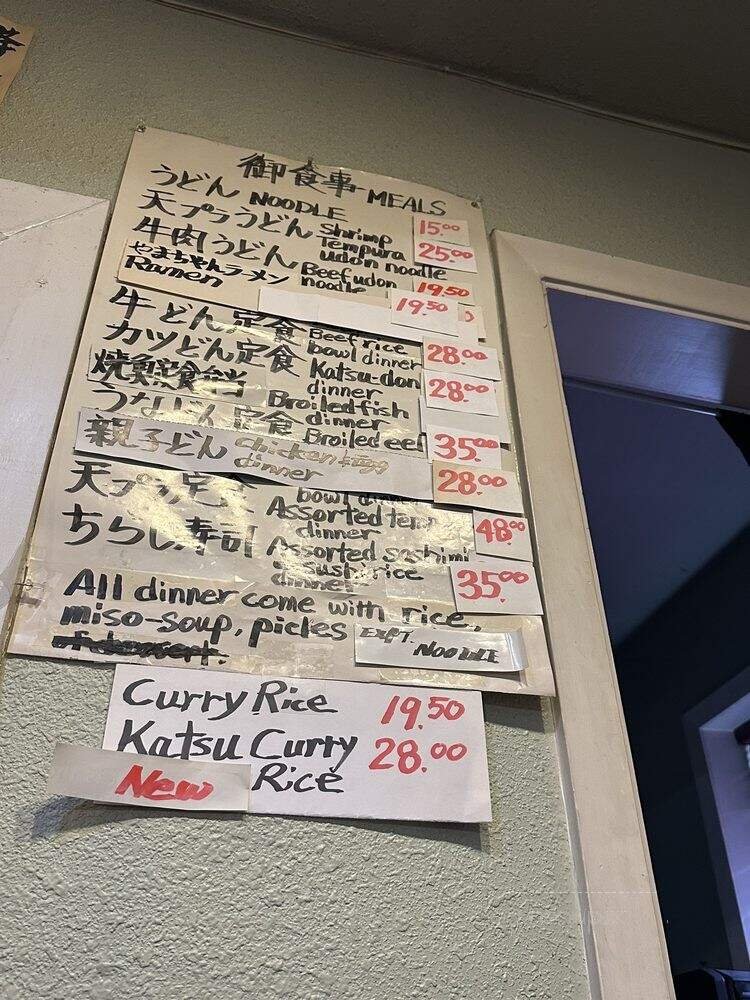 御食事-MEALS
うどん NOODLE 15.00
天プラうどん Shrimp Tempura udon noodle 25.00
牛肉うどん Beef udon noodle 19.50
やまちゃんラーメン
Ramen 19.50
牛どん定食 Beef rice bowl dinner 28.00
カツどん定食 Katsu-don dinner 28.00
焼魚定食弁当 Broiled fish dinner
うなどん定食 Broiled eel 35.00
親子どん chicken egg dinner 28.00
bowl dinner
天プラ定食 Assorted tem dinner 48.00
ちらし寿司 Assorted sashimi sushi rice dinner 35.00
All dinner come with rice,
miso-soup, pickles
Exft. NOODLE
Curry Rice 19.50
Katsu Curry 28.00
New Rice